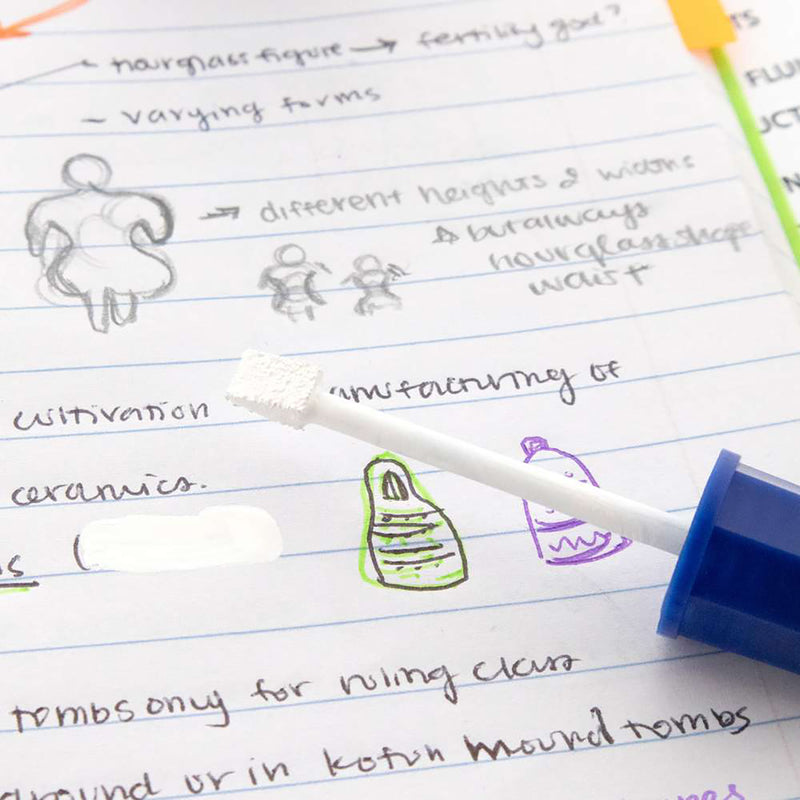 - hourglass figure → fertility god?
- varying forms
→ different heights & widths
☆ but always
hourglass shape
waist
cultivation
anufacturing of
ceramics.
s (
tombs only for ruling class
ground or in kofun mound tombs
TS
FLUI
UCT
N